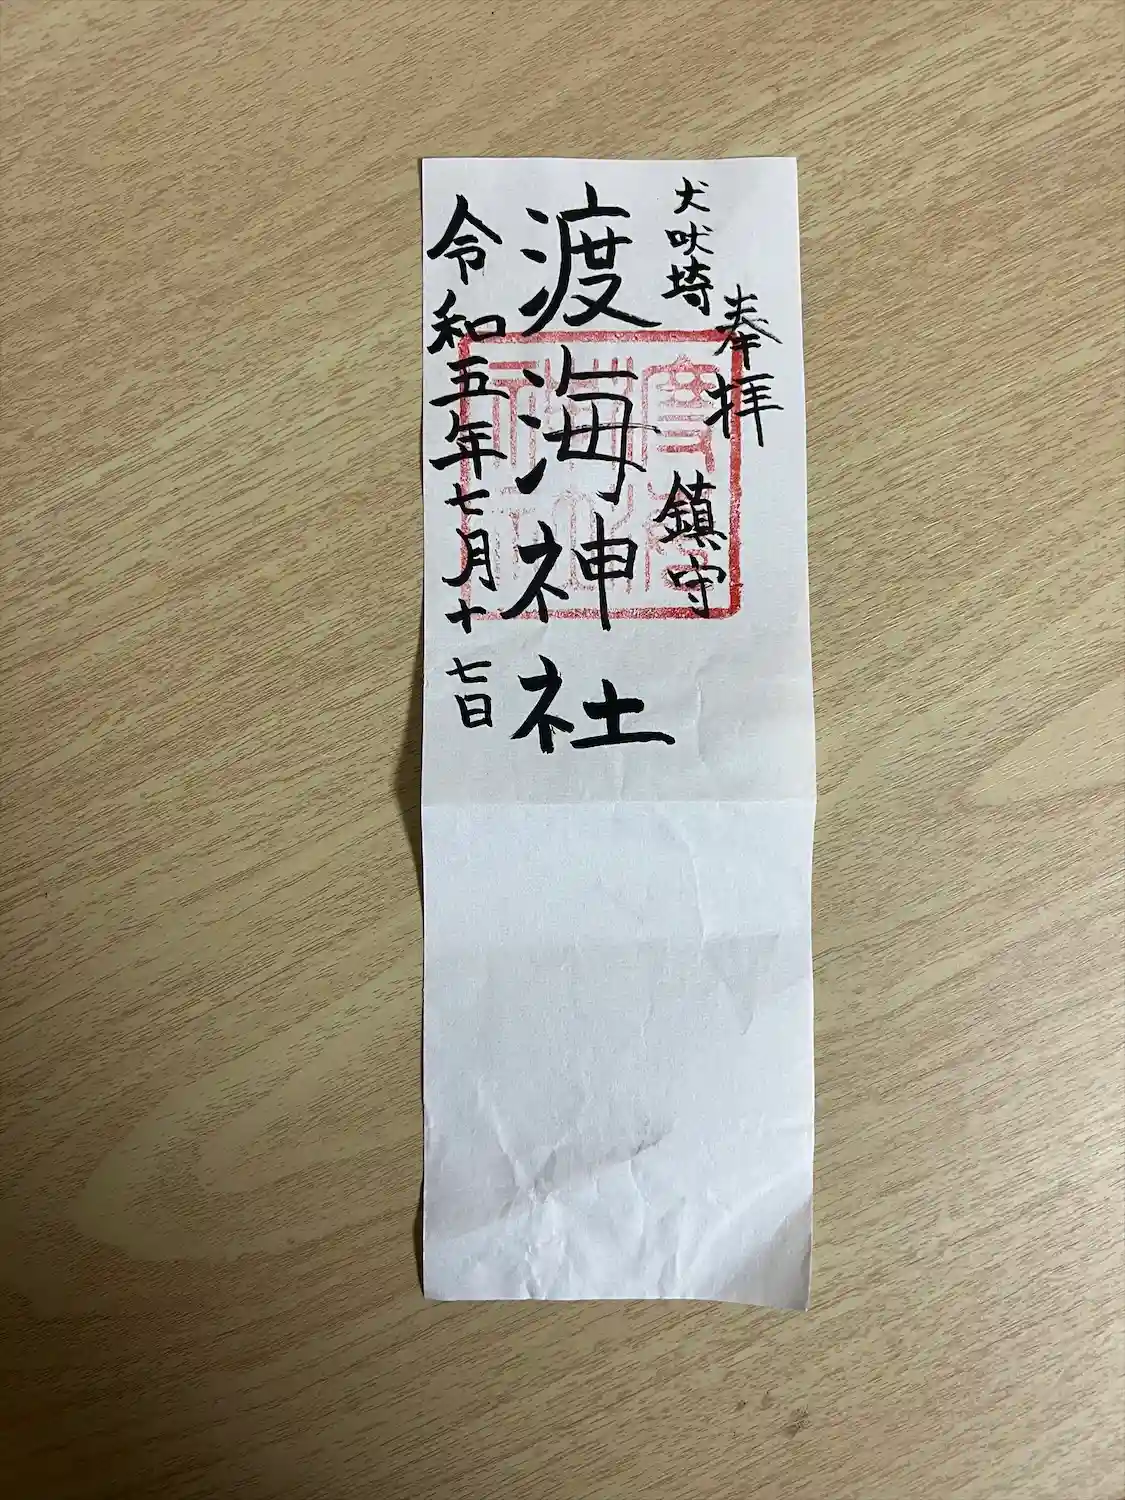 奉拝
犬吠埼 鎮守
渡海神社
令和五年七月十七日